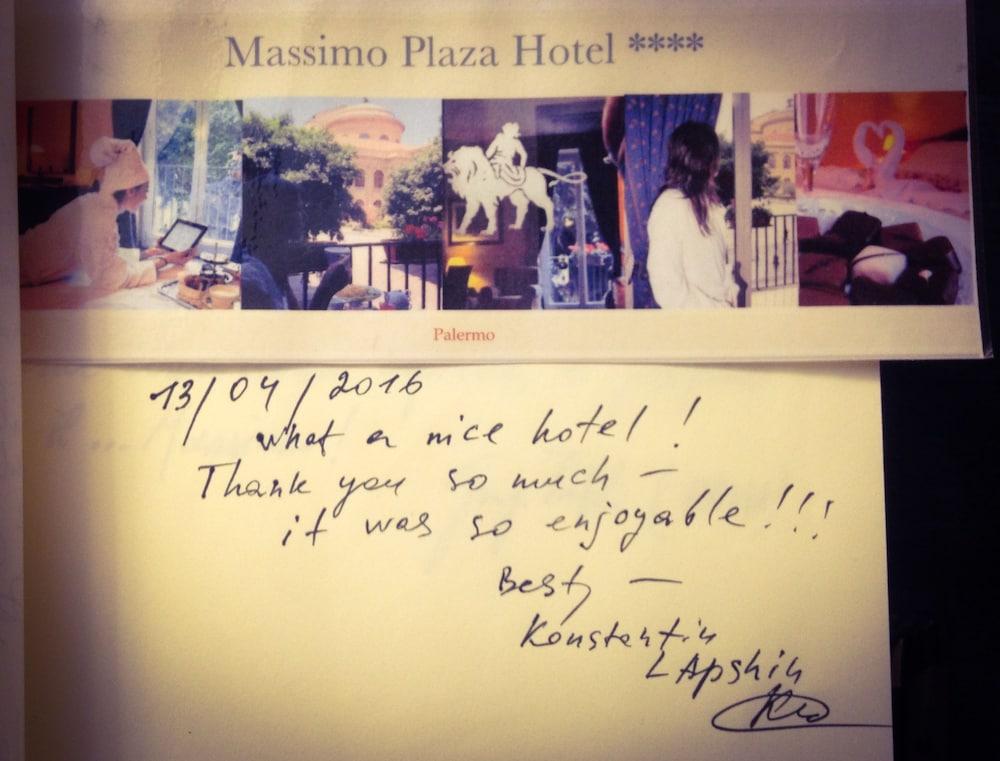 Massimo Plaza Hotel ****
Palermo
13/04/2016
what a nice hotel !
Thank you so much —
it was so enjoyable !!!
Best, —
Konstantin
LApshin